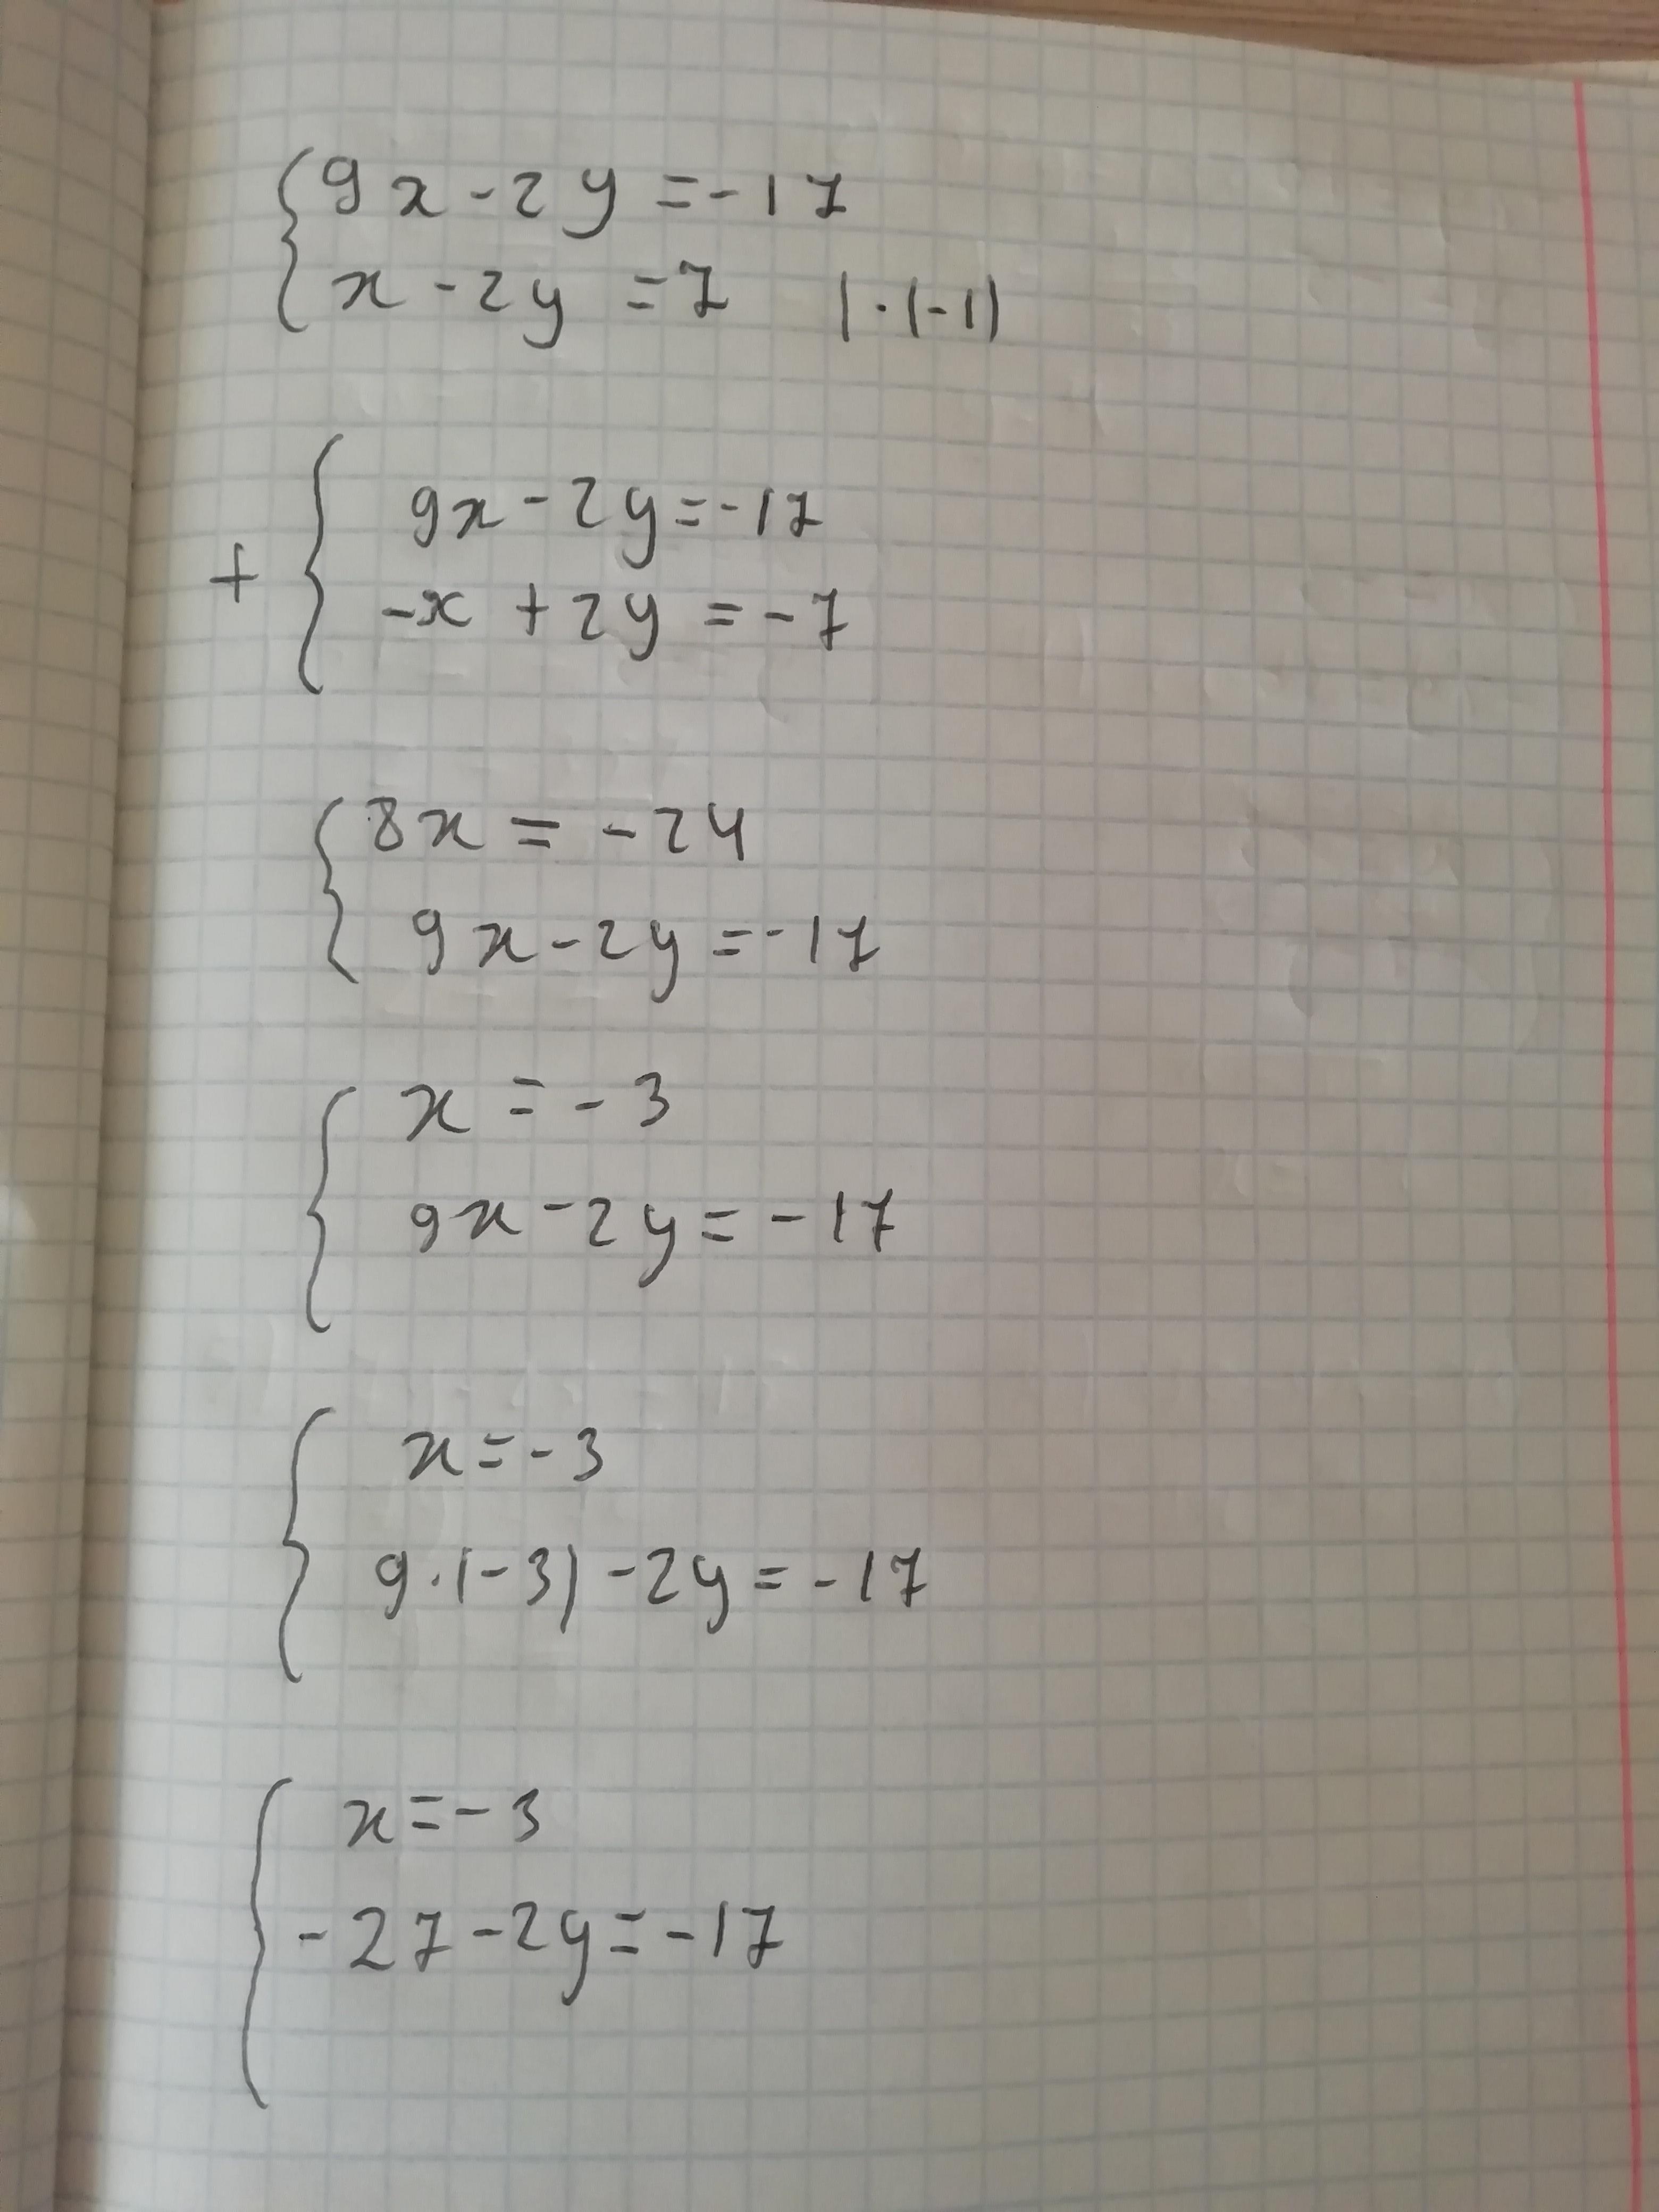 9x - 2y = -17
x - 2y = 7 | · (-1)
+
9x - 2y = -17
-x + 2y = -7
8x = -24
9x - 2y = -17
x = -3
9x - 2y = -17
x = -3
9 · (-3) - 2y = -17
x = -3
-27 - 2y = -17